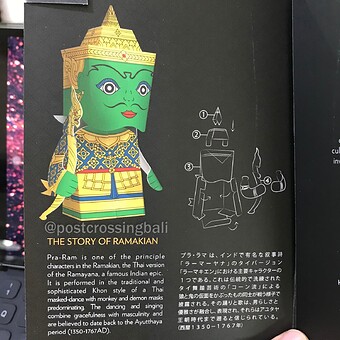 @postcrossingbali
THE STORY OF RAMAKIAN
Pra-Ram is one of the principle
characters in the Ramakian, the Thai version
of the Ramayana, a famous Indian epic.
It is performed in the traditional and
sophisticated Khon style of a Thai
masked-dance with monkey and demon masks
predominating. The dancing and singing
combine gracefulness with masculinity and
are believed to date back to the Ayutthaya
period (1350-1767AD).
1
2
3
4
プラ・ラマは、インドで有名な叙事詩
「ラーマーヤナ」のタイバージョン
「ラーマキエン」における主要キャラクターの
1つである。これは伝統的で洗練された
タイ舞踊芸術の「コーン流」による
猿と鬼の仮面をかぶったもの同士が戦う様子で
披露される。その踊りと歌は、男らしさと
優雅さが融合し、表現され、それらはアユタヤ
王朝時代まで遡ると信じられている。
(西暦1350-1767年)
cul
inv